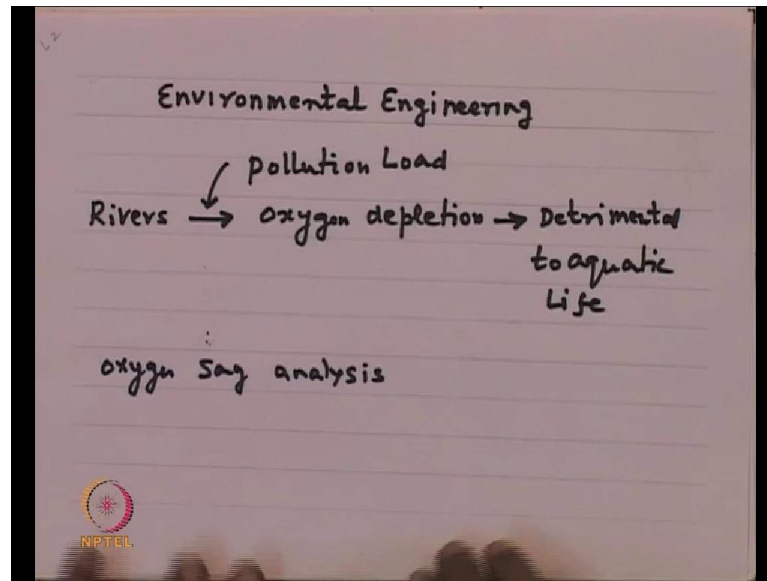 L2
Environmental Engineering
Pollution Load
Rivers → Oxygen depletion → Detrimental
to aquatic
Life
Oxygen Sag analysis
NPTEL